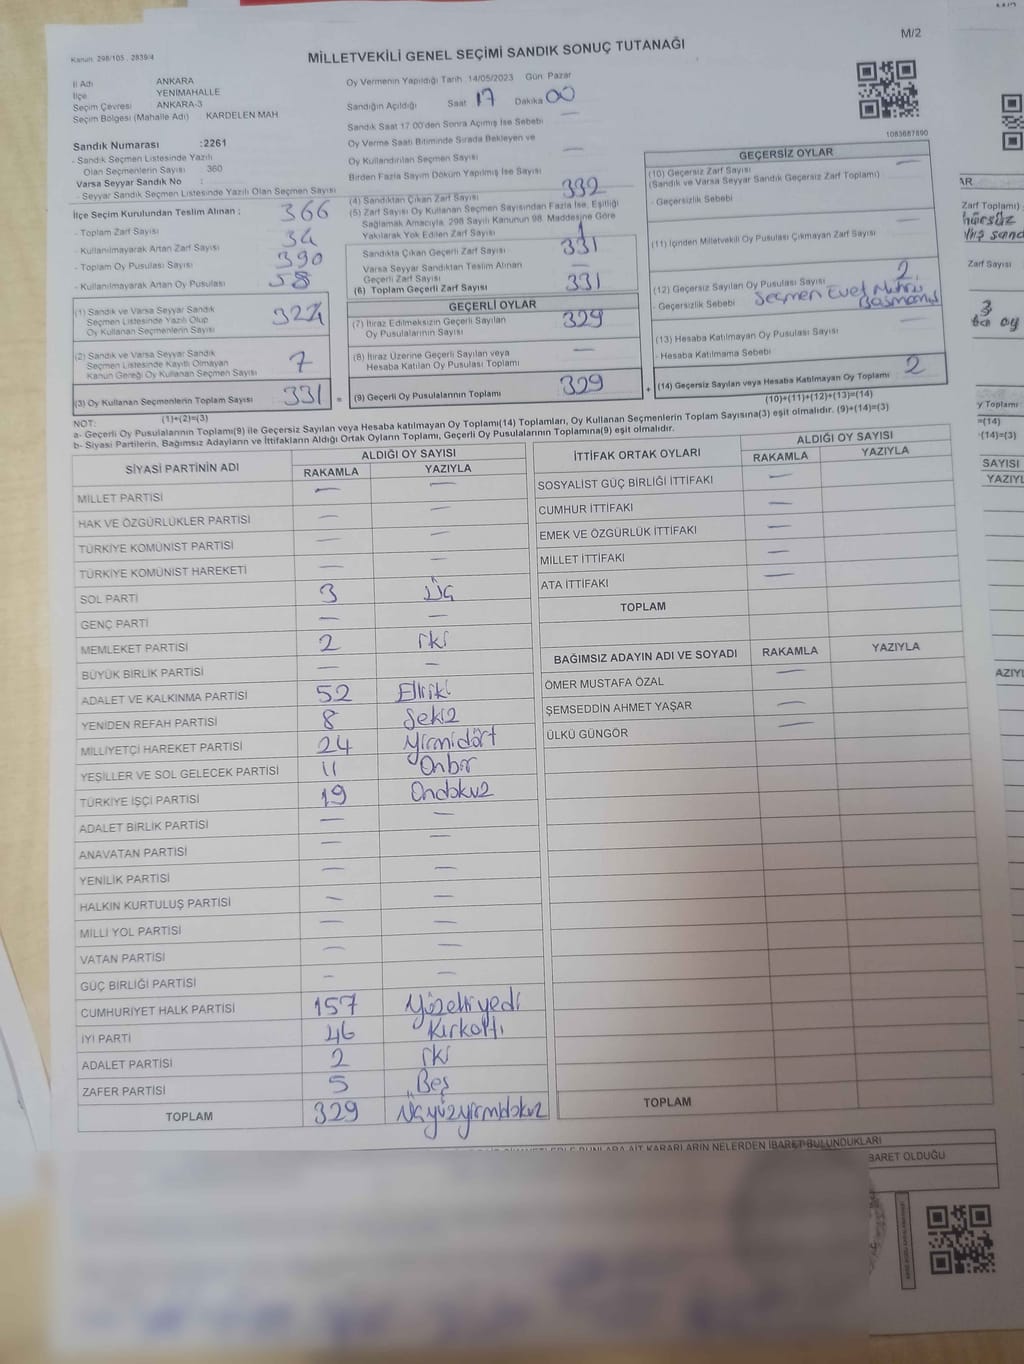 M/2
Kanun: 298/105 , 2839/4
MİLLETVEKİLİ GENEL SEÇİMİ SANDIK SONUÇ TUTANAĞI
İl Adı ANKARA
İlçe YENİMAHALLE
Seçim Çevresi ANKARA-3
Seçim Bölgesi (Mahalle Adı) KARDELEN MAH
Sandık Numarası :2261
- Sandık Seçmen Listesinde Yazılı
Olan Seçmenlerin Sayısı 360
Varsa Seyyar Sandık No :
- Seyyar Sandık Seçmen Listesinde Yazılı Olan Seçmen Sayısı
İlçe Seçim Kurulundan Teslim Alınan :
- Toplam Zarf Sayısı 366
- Kullanılmayarak Artan Zarf Sayısı 34
- Toplam Oy Pusulası Sayısı 390
- Kullanılmayarak Artan Oy Pusulası 58
(1) Sandık ve Varsa Seyyar Sandık
Seçmen Listesinde Yazılı Olup
Oy Kullanan Seçmenlerin Sayısı 324
(2) Sandık ve Varsa Seyyar Sandık
Seçmen Listesinde Kayıtlı Olmayan
Kanun Gereği Oy Kullanan Seçmen Sayısı 7
(3) Oy Kullanan Seçmenlerin Toplam Sayısı 331 =
(1)+(2)=(3)
Oy Vermenin Yapıldığı Tarih :14/05/2023 Gün: Pazar
Sandığın Açıldığı Saat 17 Dakika 00
Sandık Saat 17.00'den Sonra Açımış İse Sebebi —
Oy Verme Saati Bitiminde Sırada Bekleyen ve
Oy Kullandırılan Seçmen Sayısı —
Birden Fazla Sayım Döküm Yapılmış İse Sayısı
(4) Sandıktan Çıkan Zarf Sayısı 332
(5) Zarf Sayısı Oy Kullanan Seçmen Sayısından Fazla İse, Eşitliği
Sağlamak Amacıyla, 298 Sayılı Kanunun 98. Maddesine Göre
Yakılarak Yok Edilen Zarf Sayısı 1
Sandıkta Çıkan Geçerli Zarf Sayısı 331
Varsa Seyyar Sandıktan Teslim Alınan
Geçerli Zarf Sayısı —
(6) Toplam Geçerli Zarf Sayısı 331
GEÇERLİ OYLAR
(7) İtiraz Edilmeksizin Geçerli Sayılan
Oy Pusulalarının Sayısı 329
(8) İtiraz Üzerine Geçerli Sayılan veya
Hesaba Katılan Oy Pusulası Toplamı —
(9) Geçerli Oy Pusulalarının Toplamı 329 +
1083687890
GEÇERSİZ OYLAR
(10) Geçersiz Zarf Sayısı —
(Sandık ve Varsa Seyyar Sandık Geçersiz Zarf Toplamı)
- Geçersizlik Sebebi
(11) İçinden Milletvekili Oy Pusulası Çıkmayan Zarf Sayısı —
(12) Geçersiz Sayılan Oy Pusulası Sayısı 2
- Geçersizlik Sebebi Seçmen Evet Mührü
Basmamış
(13) Hesaba Katılmayan Oy Pusulası Sayısı —
- Hesaba Katılmama Sebebi
(14) Geçersiz Sayılan veya Hesaba Katılmayan Oy Toplamı 2
(10)+(11)+(12)+(13)=(14)
NOT:
a- Geçerli Oy Pusulalarının Toplamı(9) ile Geçersiz Sayılan veya Hesaba katılmayan Oy Toplamı(14) Toplamları, Oy Kullanan Seçmenlerin Toplam Sayısına(3) eşit olmalıdır. (9)+(14)=(3)
b- Siyasi Partilerin, Bağımsız Adayların ve İttifakların Aldığı Ortak Oyların Toplamı, Geçerli Oy Pusulalarının Toplamına(9) eşit olmalıdır.
SİYASİ PARTİNİN ADI ALDIĞI OY SAYISI
RAKAMLA YAZIYLA
MİLLET PARTİSİ — —
HAK VE ÖZGÜRLÜKLER PARTİSİ — —
TÜRKİYE KOMÜNİST PARTİSİ — —
TÜRKİYE KOMÜNİST HAREKETİ — —
SOL PARTİ 3 Üç
GENÇ PARTİ — —
MEMLEKET PARTİSİ 2 İki
BÜYÜK BİRLİK PARTİSİ — —
ADALET VE KALKINMA PARTİSİ 52 Elliiki
YENİDEN REFAH PARTİSİ 8 Sekiz
MİLLİYETÇİ HAREKET PARTİSİ 24 Yirmidört
YEŞİLLER VE SOL GELECEK PARTİSİ 11 Onbir
TÜRKİYE İŞÇİ PARTİSİ 19 Ondokuz
ADALET BİRLİK PARTİSİ — —
ANAVATAN PARTİSİ — —
YENİLİK PARTİSİ — —
HALKIN KURTULUŞ PARTİSİ — —
MİLLİ YOL PARTİSİ — —
VATAN PARTİSİ — —
GÜÇ BİRLİĞİ PARTİSİ — —
CUMHURİYET HALK PARTİSİ 157 Yüzelliyedi
İYİ PARTİ 46 Kırkaltı
ADALET PARTİSİ 2 İki
ZAFER PARTİSİ 5 Beş
TOPLAM 329 Üçyüzyirmidokuz
İTTİFAK ORTAK OYLARI ALDIĞI OY SAYISI
RAKAMLA YAZIYLA
SOSYALİST GÜÇ BİRLİĞİ İTTİFAKI —
CUMHUR İTTİFAKI —
EMEK VE ÖZGÜRLÜK İTTİFAKI —
MİLLET İTTİFAKI —
ATA İTTİFAKI —
TOPLAM
BAĞIMSIZ ADAYIN ADI VE SOYADI RAKAMLA YAZIYLA
ÖMER MUSTAFA ÖZAL —
ŞEMSEDDİN AHMET YAŞAR —
ÜLKÜ GÜNGÖR —
TOPLAM
BUNLARA AİT KARARLARIN NELERDEN İBARET BULUNDUKLARI
BARET OLDUĞU
AR
Zarf Toplamı)
Zarf Sayısı
3
y Toplamı
=(14)
(14)=(3)
SAYISI
YAZIYL
AZIYL